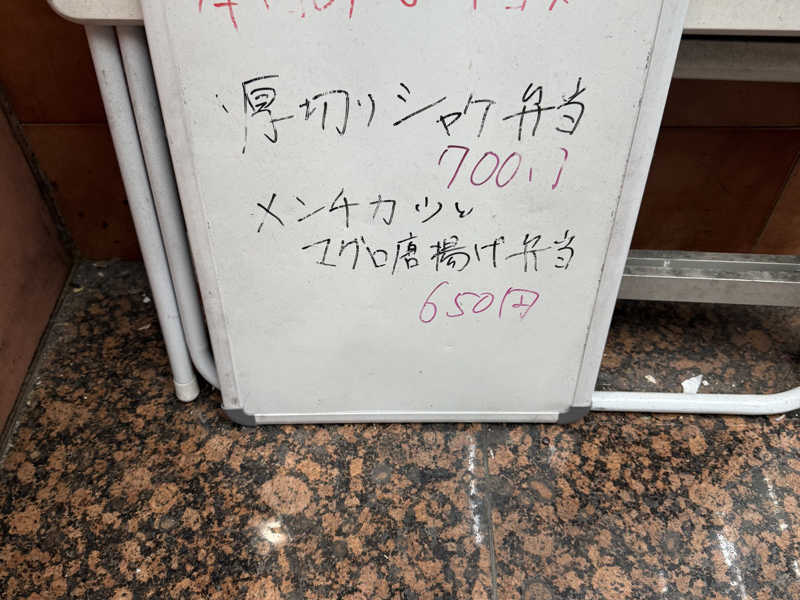 厚切りシャケ弁当
700円
メンチカツと
マグロ唐揚げ弁当
650円